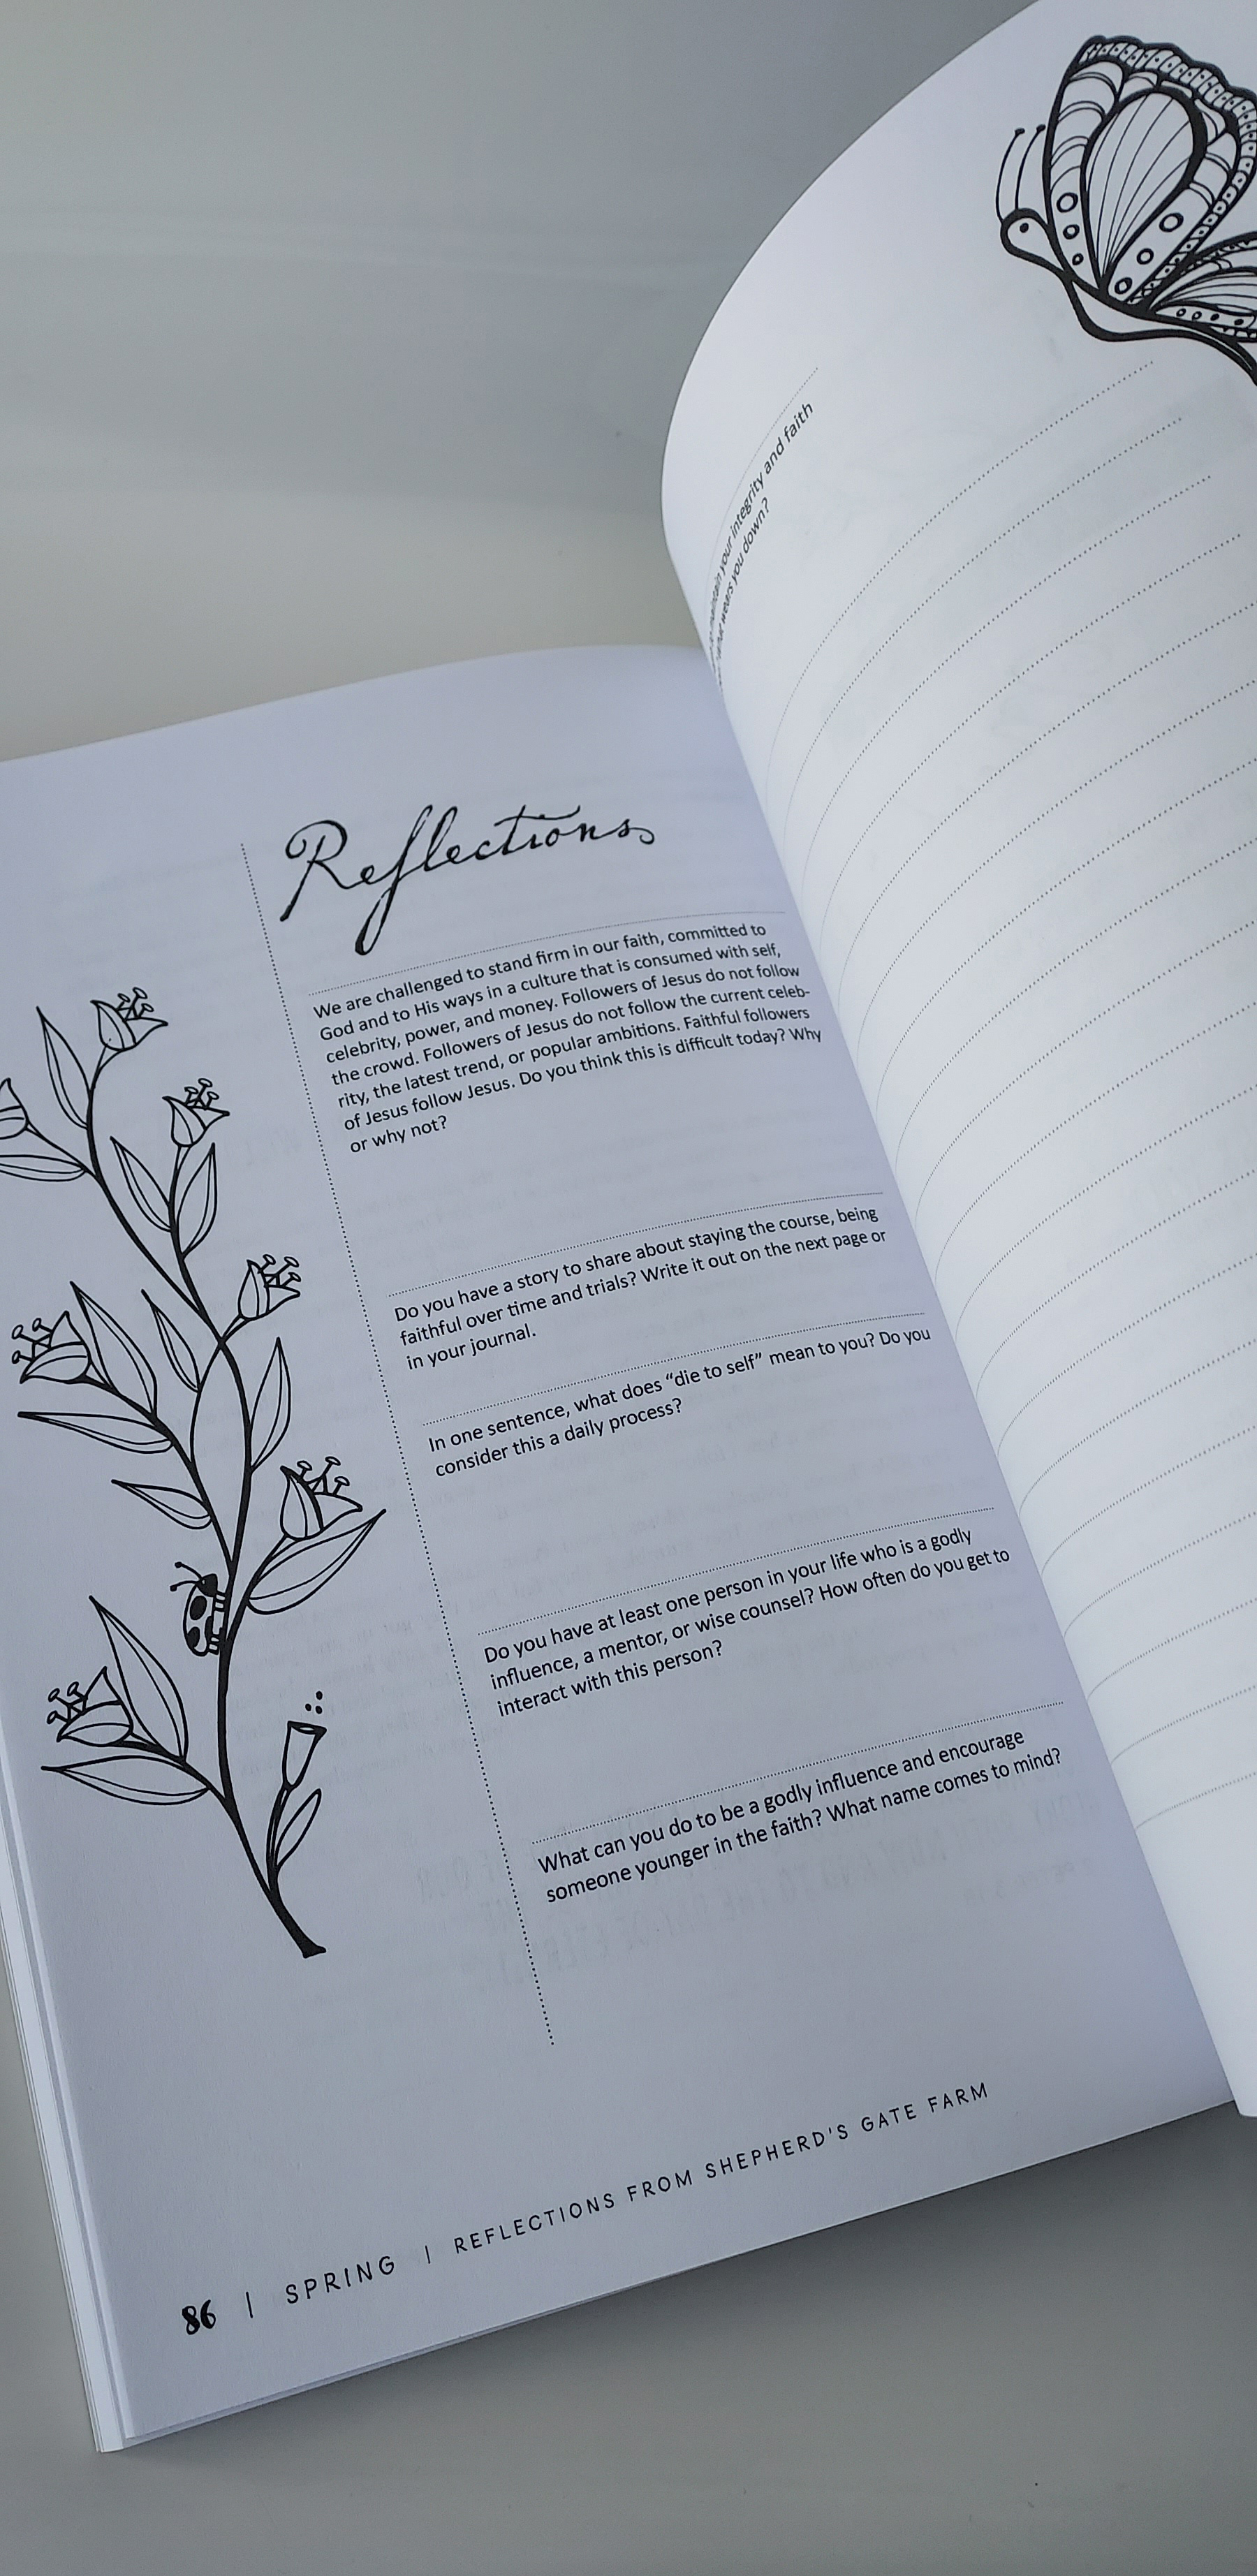 Reflections
We are challenged to stand firm in our faith, committed to
God and to His ways in a culture that is consumed with self,
celebrity, power, and money. Followers of Jesus do not follow
the crowd. Followers of Jesus do not follow the current celeb-
rity, the latest trend, or popular ambitions. Faithful followers
of Jesus follow Jesus. Do you think this is difficult today? Why
or why not?
Do you have a story to share about staying the course, being
faithful over time and trials? Write it out on the next page or
in your journal.
In one sentence, what does “die to self” mean to you? Do you
consider this a daily process?
Do you have at least one person in your life who is a godly
influence, a mentor, or wise counsel? How often do you get to
interact with this person?
What can you do to be a godly influence and encourage
someone younger in the faith? What name comes to mind?
86 | SPRING | REFLECTIONS FROM SHEPHERD'S GATE FARM
your integrity and faith
wears you down?